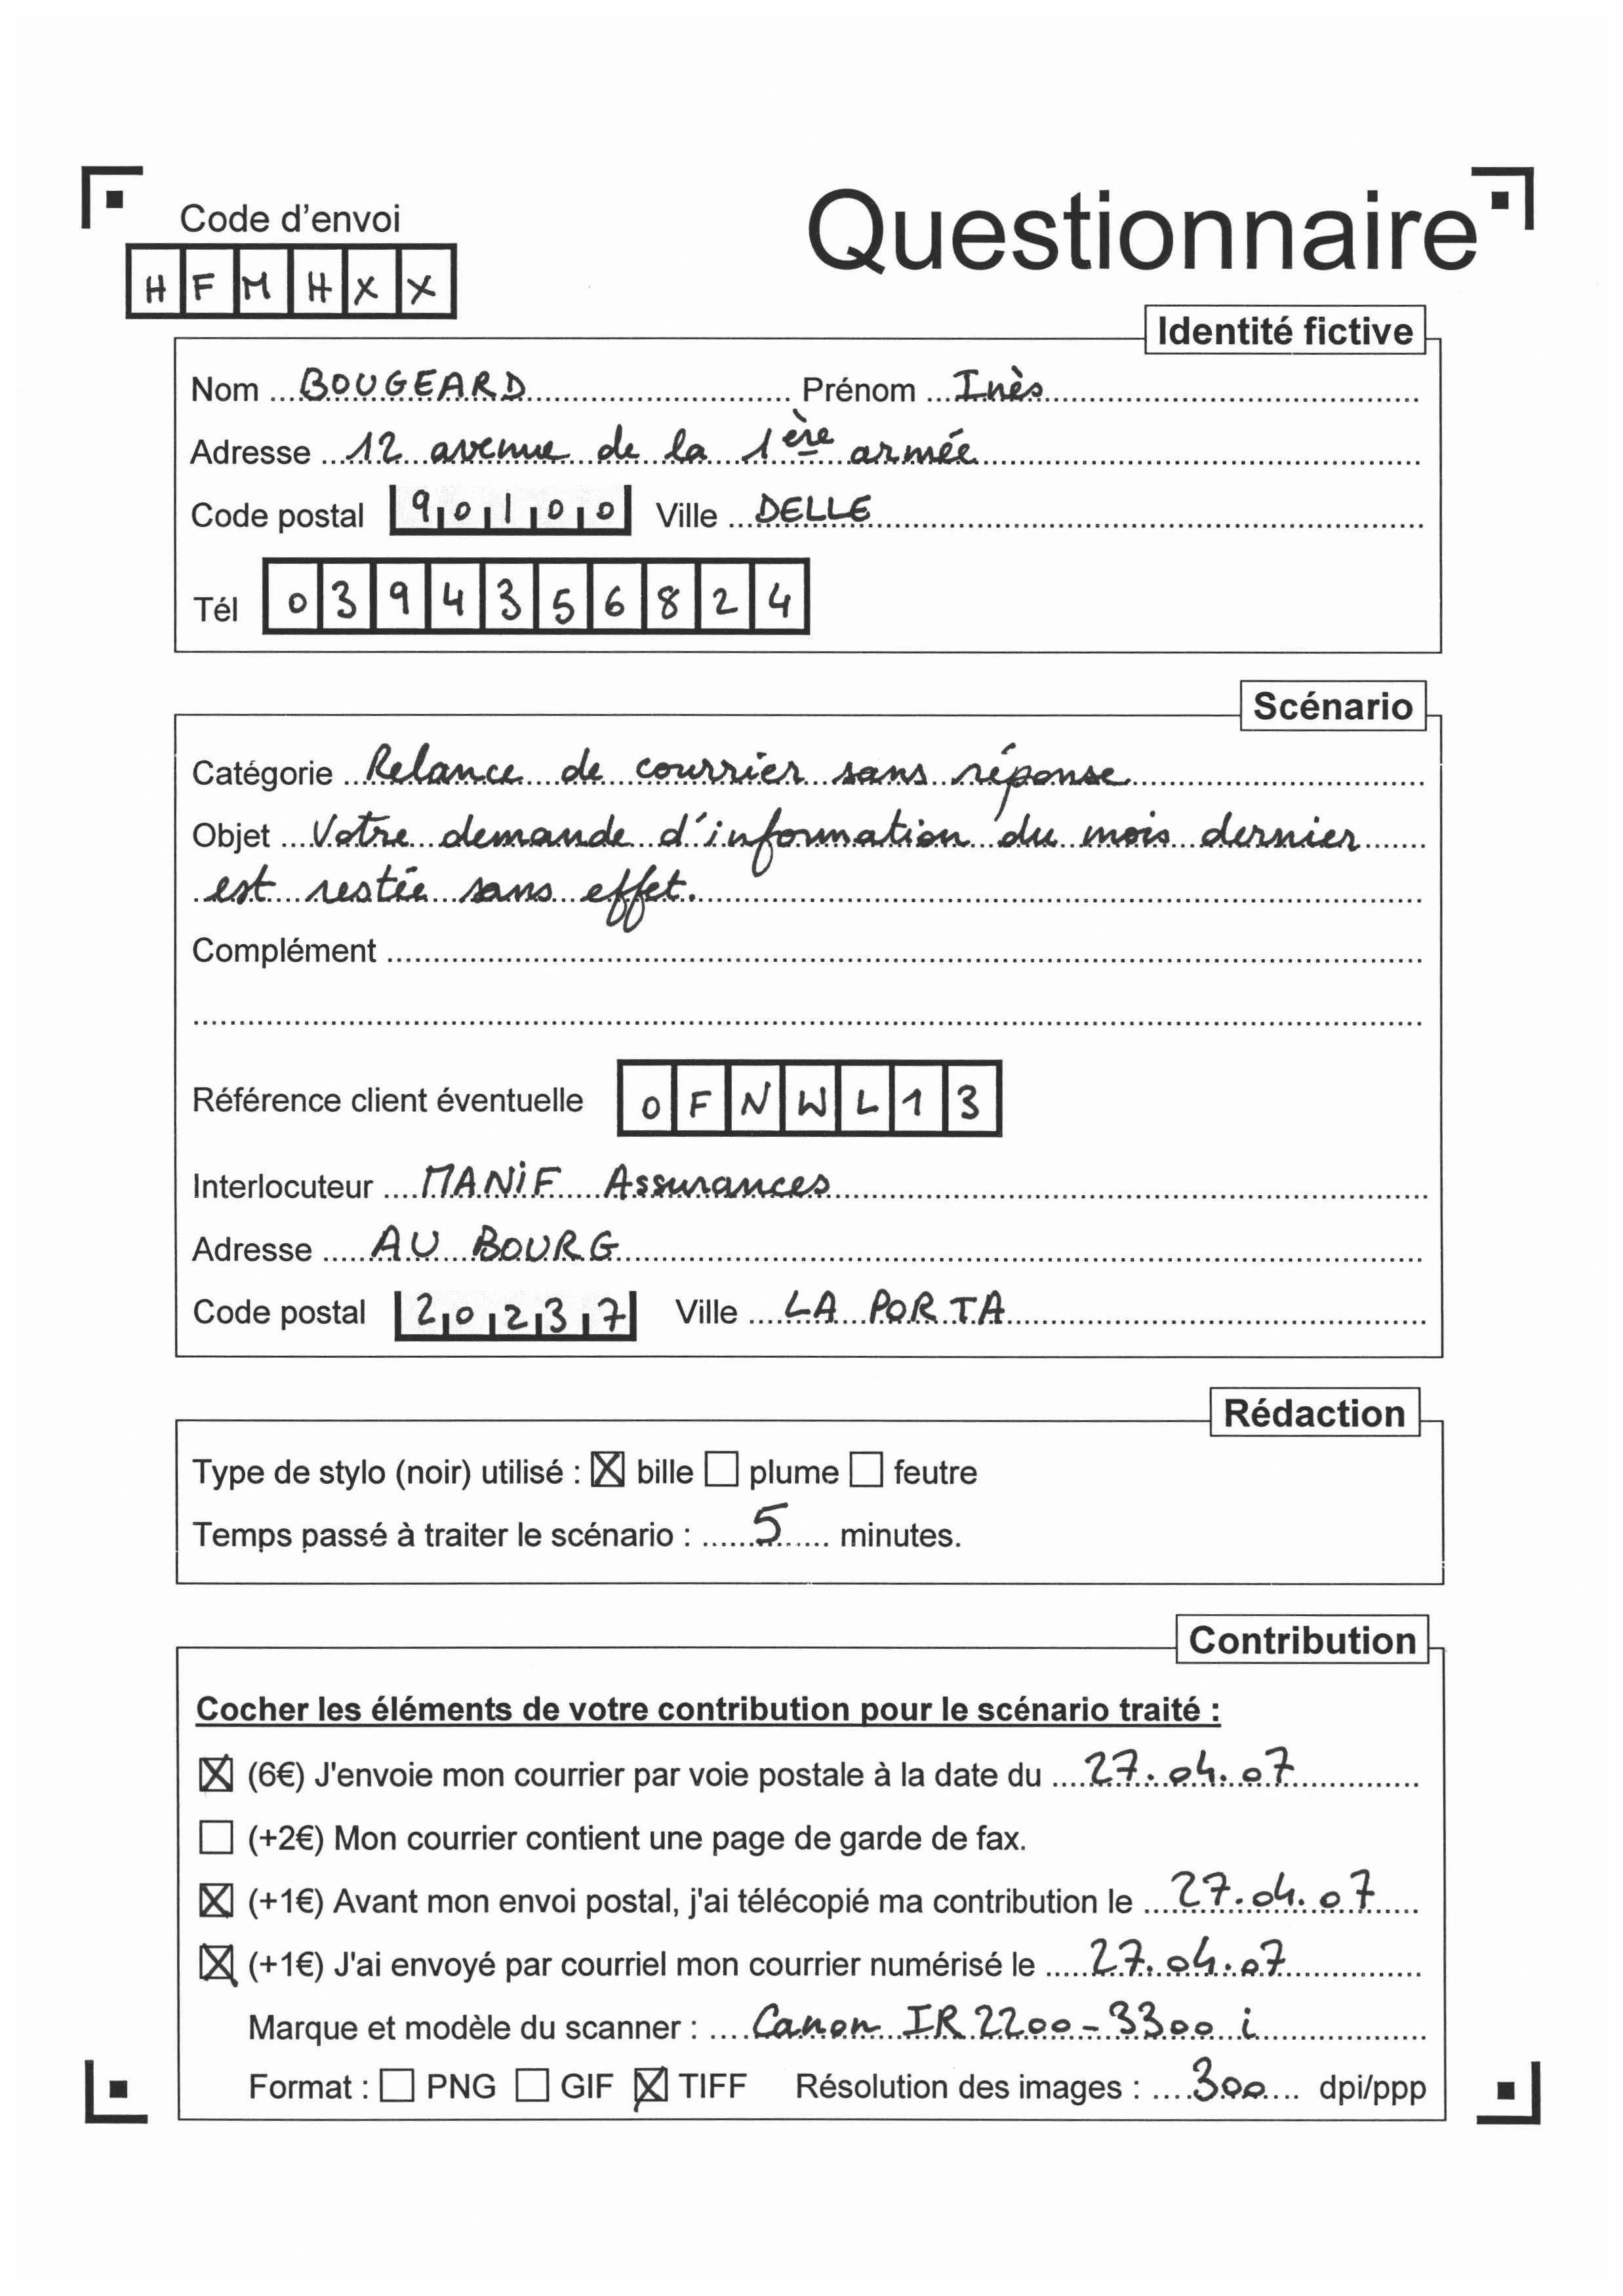 Code d'envoi
Questionnaire
HFMHXX
Identité fictive
Nom BOUGEARD Prénom Inès
Adresse 12 avenue de la 1ère armée
Code postal 90100 Ville DELLE
Tél 0394356824
Scénario
Catégorie Relance de courrier sans réponse
Objet Votre demande d'information du mois dernier
est restée sans effet.
Complément
Référence client éventuelle 0FNWL13
Interlocuteur MANIF Assurances
Adresse AU BOURG
Code postal 20237 Ville LA PORTA
Rédaction
Type de stylo (noir) utilisé : ☒ bille ☐ plume ☐ feutre
Temps passé à traiter le scénario : 5 minutes.
Contribution
Cocher les éléments de votre contribution pour le scénario traité :
☒ (6€) J'envoie mon courrier par voie postale à la date du 27.04.07
☐ (+2€) Mon courrier contient une page de garde de fax.
☒ (+1€) Avant mon envoi postal, j'ai télécopié ma contribution le 27.04.07
☒ (+1€) J'ai envoyé par courriel mon courrier numérisé le 27.04.07
Marque et modèle du scanner : Canon IR 2200-3300 i
Format : ☐ PNG ☐ GIF ☒ TIFF Résolution des images : 300 dpi/ppp